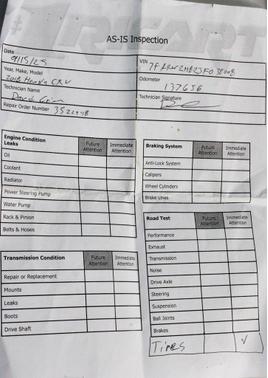 AS-IS Inspection
Date
9/15/25
VIN
Year, Make, Model
2018 Honda CRV
Odometer
137656
Technician Name
David
Technician Signature
Repair Order Number
Engine Condition
Leaks
Future Attention
Immediate Attention
Oil
Coolant
Radiator
Power Steering Pump
Water Pump
Rack & Pinion
Belts & Hoses
Braking System
Future Attention
Immediate Attention
Anti-Lock System
Calipers
Wheel Cylinders
Brake Lines
Transmission Condition
Future Attention
Immediate Attention
Repair or Replacement
Mounts
Leaks
Boots
Drive Shaft
Road Test
Future Attention
Immediate Attention
Performance
Exhaust
Transmission
Noise
Drive Axle
Steering
Suspension
Ball Joints
Brakes
Tires